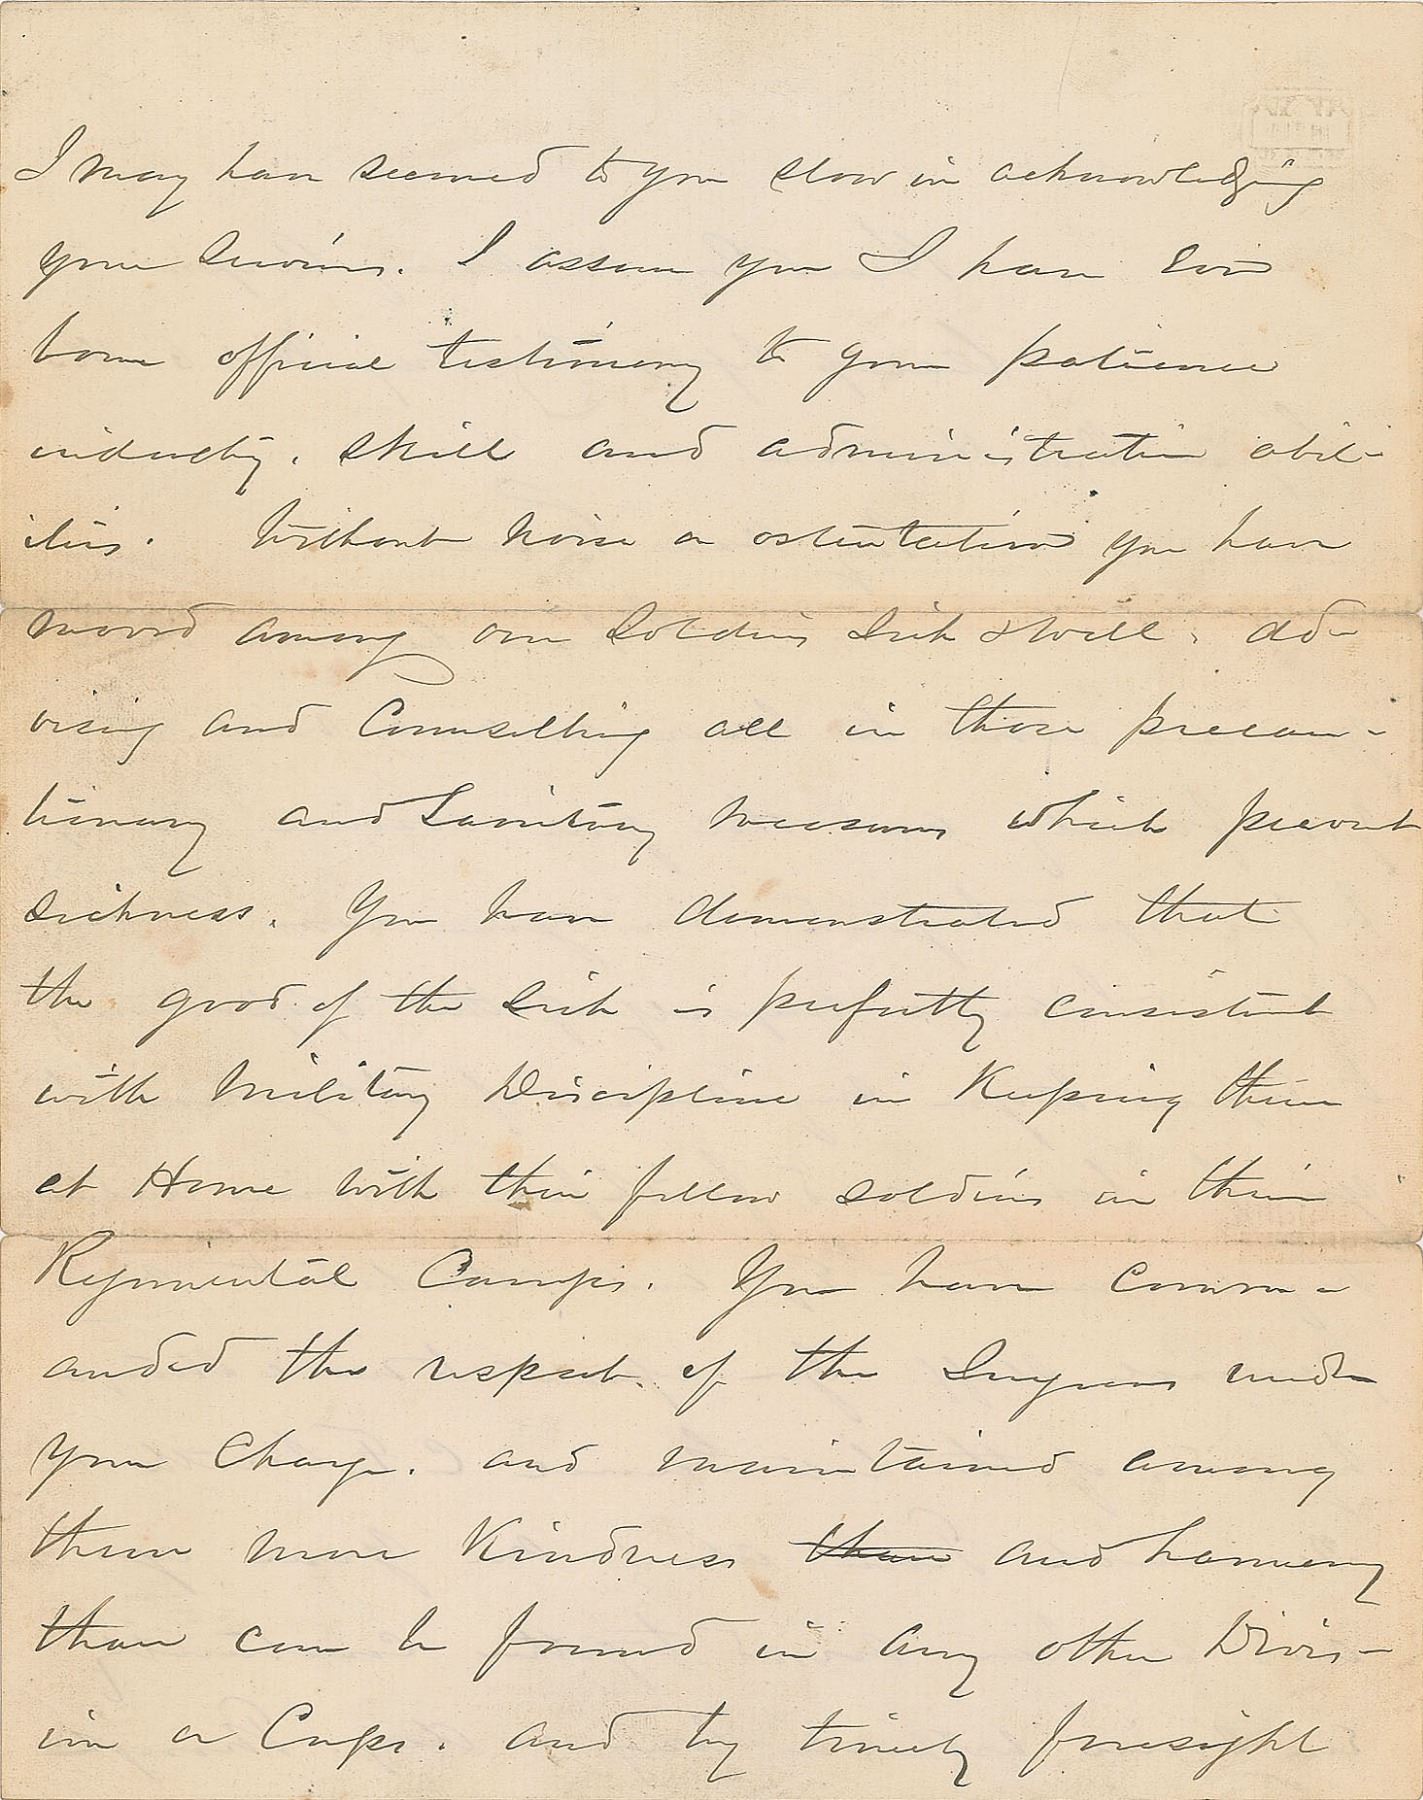 I may have seemed to you slow in acknowledging
your services. I assure you I have ever
borne official testimony to your patience
industry, skill and administrative abil-
ities. Without noise or ostentation you have
moved among our Soldiers Sick & Well, ad-
vising and Counselling all in those precau-
tionary and Sanitary measures which prevent
sickness. You have demonstrated that
the good of the Sick is perfectly consistent
with Military Discipline in Keeping them
at Home with their fellow soldiers in their
Regimental Camps. You have comm-
anded the respect of the Surgeons under
your Charge, and maintained among
them more Kindness than and harmony
than can be found in any other Divis-
ion or Corps, and by timely foresight